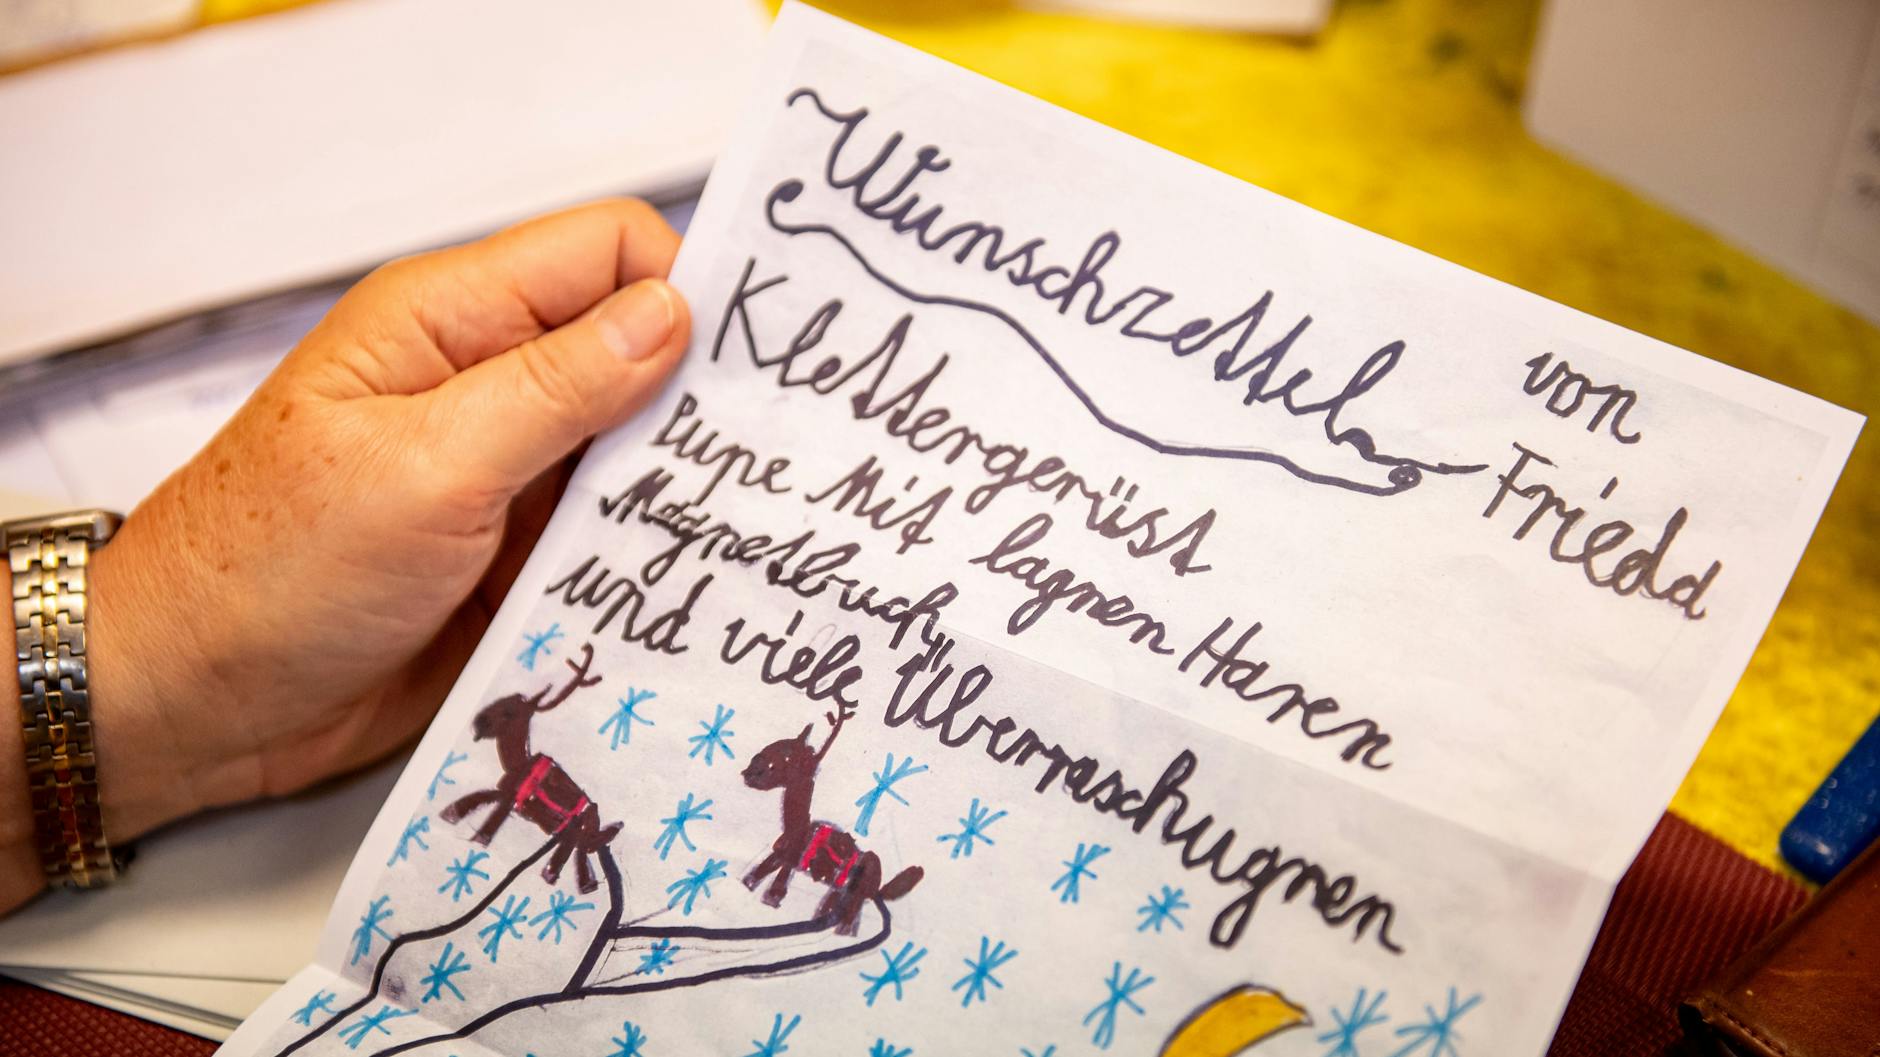 Wunschzettel von
Friedd
Klettergerüst
Pupe Mit lagnen Haren
Magnetbuch
und viele Überraschugnen